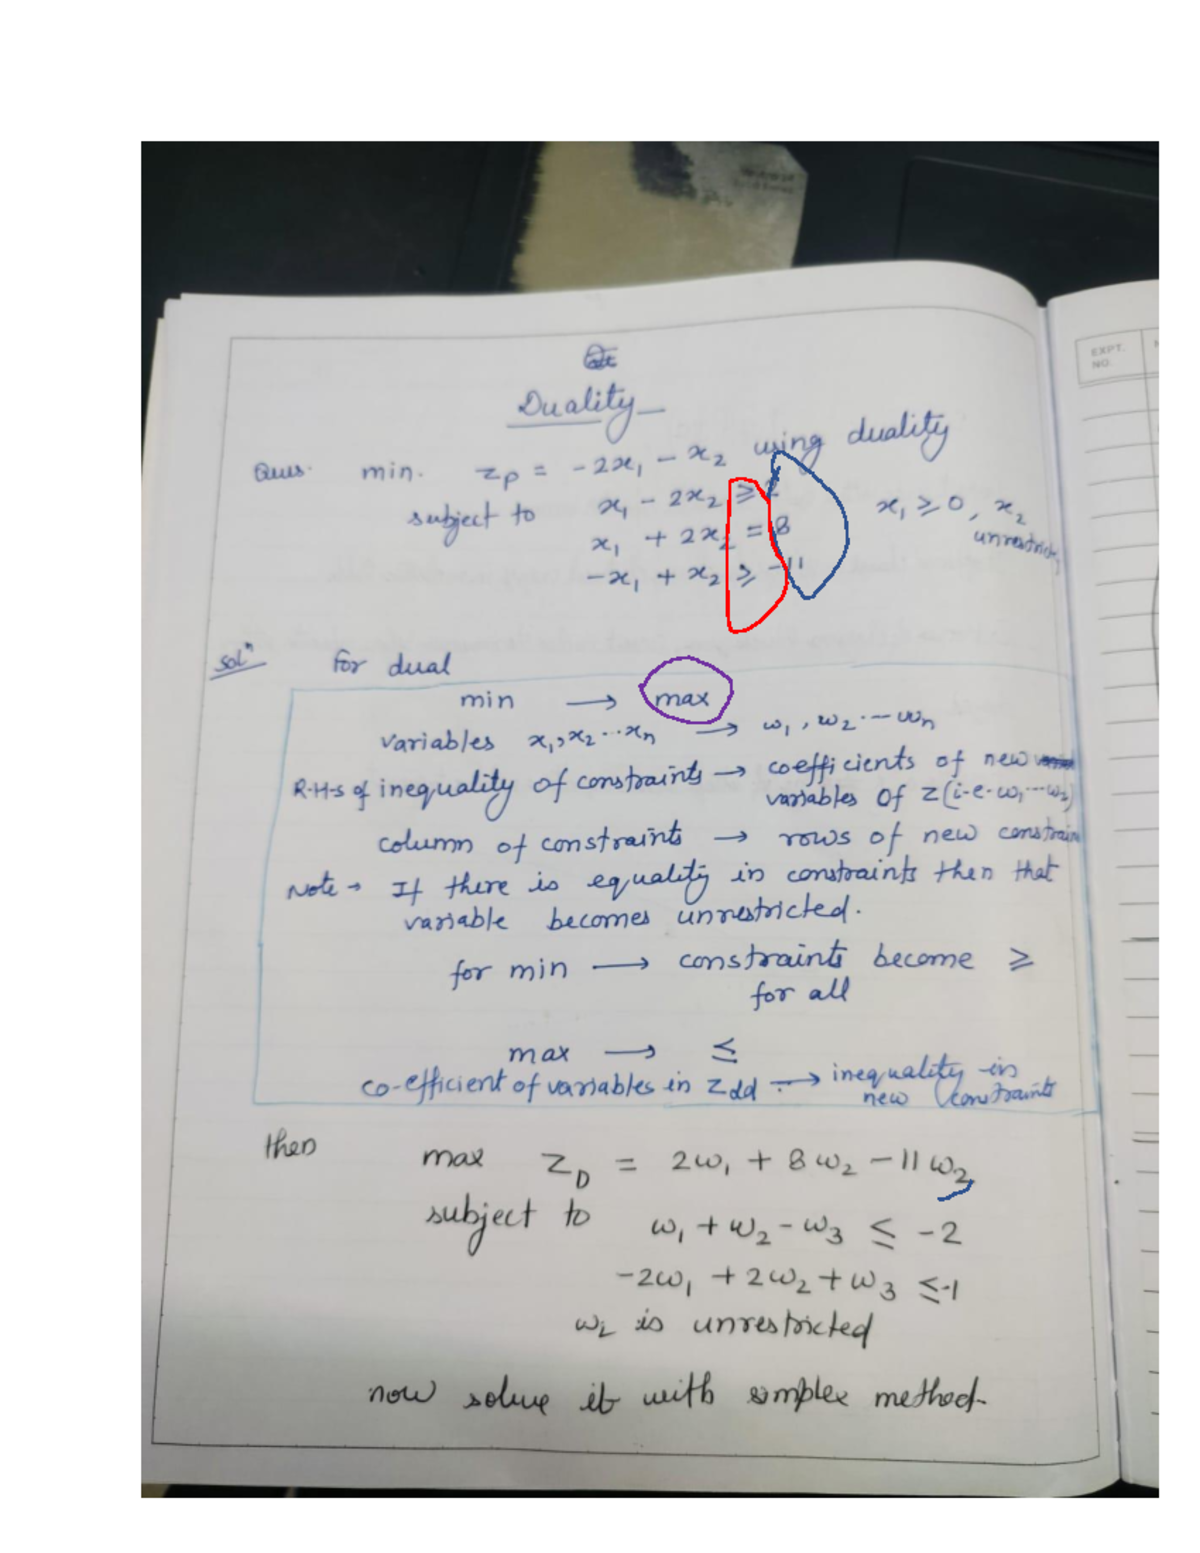 Duality
Ques. min. Zp = -2x₁ - x₂ using duality
subject to x₁ - 2x₂ ≥ 2 x₁ ≥ 0, x₂
x₁ + 2x₂ = 8 unrestricted
-x₁ + x₂ ≥ -11
EXPT.
NO.
Solⁿ For dual
min → max
variables x₁, x₂ ... xn → ω₁, ω₂ ... ωn
R.H.S of inequality of constraints → coefficients of new
variables of Z (i.e. ω₁ ... ω₃)
column of constraints → rows of new constrain
Note → If there is equality in constraints then that
variable becomes unrestricted.
for min → constraints become ≥
for all
max → ≤
co-efficient of variables in Zdd → inequality in
new constraints
then max Z_D = 2ω₁ + 8ω₂ - 11ω₂
subject to ω₁ + ω₂ - ω₃ ≤ -2
-2ω₁ + 2ω₂ + ω₃ ≤ -1
ω₂ is unrestricted
now solve it with simplex method.